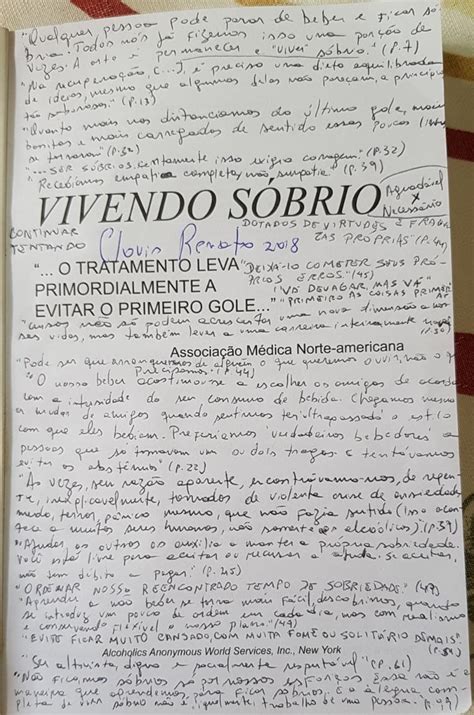 "Qualquer pessoa pode parar de beber e ficar só-
bria. Todos nós já fizemos isso uma porção de
vezes. A arte é permanecer e "viver" sóbrio." (P.7)
"Na recuperação, (...), é preciso uma dieta equilibrada
de ideias, mesmo que algumas delas não pareçam, a princípio,
tão saborosas." (P.13)
"Quanto mais nos distanciamos do último gole, mais
bonitas e mais carregadas de sentido essas poucas
se tornaram" (P.32)
"... SER SÓBRIOS. Certamente isso exigia coragem." (P.32)
Recebíamos empatia completa, não simpatia" (P.39)
VIVENDO SÓBRIO
Agradável
X
Necessário
CONTINUAR
TENTANDO
Clovis Renato 2018
DOTADOS DE VIRTUDES E
PRÓPRIAS" (P.44)
"... O TRATAMENTO LEVA
PRIMORDIALMENTE A
EVITAR O PRIMEIRO GOLE..."
"DEIXÁ-LO COMETER SEUS PRÓ-
PRIOS ERROS." (45)
"VÁ DEVAGAR, MAS VÁ"
"PRIMEIRO AS COISAS PRIMEI
não só podem acrescentar uma nova dimensão a nos-
sas vidas, mas também levar a uma carreira inteiramente
Associação Médica Norte-americana
"Pode ser que arranquemos de alguém o que queremos ouvir, não o que
precisamos" (P.44)
"O nosso beber acostumou-se a escolher os amigos de acordo
com a intensidade do seu consumo de bebida. Chegamos mesmo
a mudar de amigos quando sentimos ter ultrapassado o estilo
com que eles bebiam. Preferíamos "verdadeiros bebedores" a
pessoas que só tomavam um ou dois tragos. E tentávamos
evitar os abstêmios" (P.22)
"Às vezes, sem razão aparente, encontrávamo-nos, de repen-
te, inexplicavelmente, tomados de violenta crise de ansiedade,
medo, terror, pânico mesmo, que não fazia sentido (Isso acon-
tece a muitos seres humanos, não somente aos alcoólicos)" (P.37)
"Ajudar os outros os auxilia a manter a própria sobriedade.
Você está livre para aceitar ou recusar a ajuda. Se aceitar,
não tem débito a pagar." (P.45)
"ORDENAR NOSSO REENCONTRADO TEMPO DE SOBRIEDADE." (49)
"Aprender a não beber se torna mais fácil, descobrimos, quando
se introduz um pouco de ordem em cada dia, mas com realismo
e conservando flexível o nosso plano." (49)
"EVITE FICAR MUITO CANSADO, COM MUITA FOME OU SOLITÁRIO DEMAIS".
Alcoholics Anonymous World Services, Inc., New York
"Ser altruísta, digno e socialmente respeitável" (P.61)
"Não ficamos sóbrios só por nossos esforços. Essa não é a
maneira que aprendemos para ficar sóbrios. E a alegria com-
pleta de viver sóbrio não é, igualmente, trabalho de uma pessoa só." (P.99)